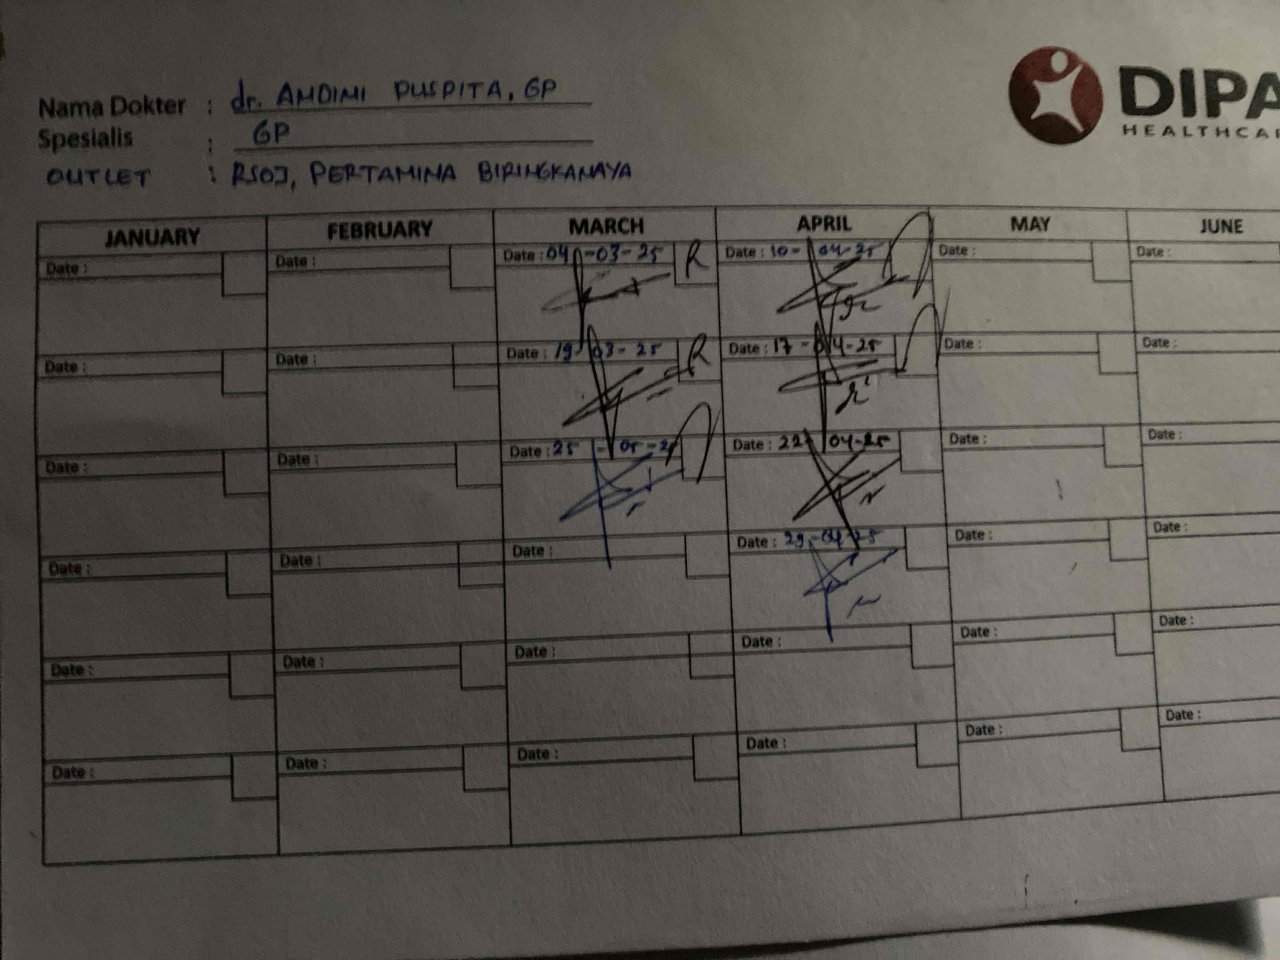 Nama Dokter : dr. ANDINI PUSPITA, GP
Spesialis : GP
OUTLET : RSOJ, PERTAMINA BIRINGKANAYA
DIPA
HEALTHCAR
JANUARY FEBRUARY MARCH APRIL MAY JUNE
Date : Date : Date : 04-03-25 R Date : 10-04-25 Date : Date :
Date : Date : Date : 19-03-25 R Date : 17-04-25 Date : Date :
Date : Date : Date : 25-05-2 Date : 22-04-25 Date : Date :
Date : Date : Date : Date : 29-04-25 Date : Date :
Date : Date : Date : Date : Date : Date :
Date : Date : Date : Date : Date : Date :